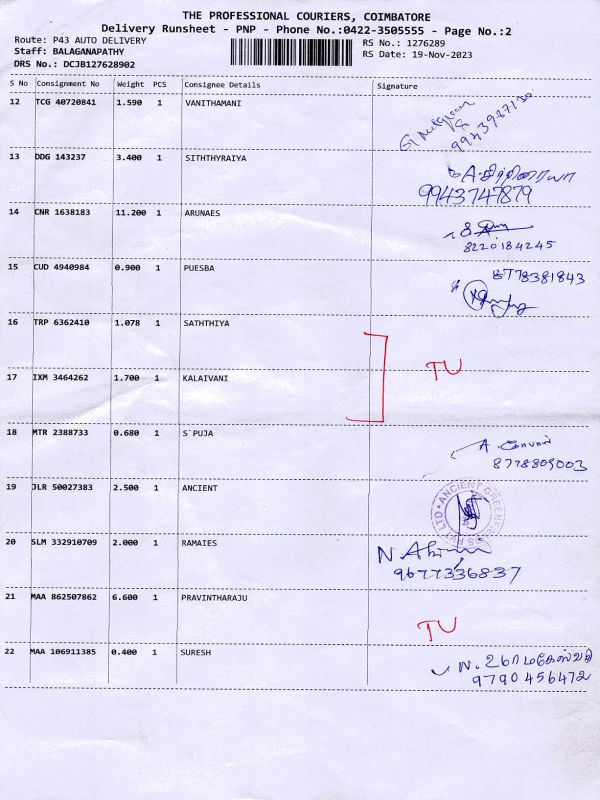 THE PROFESSIONAL COURIERS, COIMBATORE
Delivery Runsheet - PNP - Phone No.:0422-3505555 - Page No.:2
Route: P43 AUTO DELIVERY
RS No.: 1276289
Staff: BALAGANAPATHY
RS Date: 19-Nov-2023
DRS No.: DCJB127628902
S No Consignment No Weight PCS Consignee Details Signature
12 TCG 40720841 1.590 1 VANITHAMANI
13 DDG 143237 3.400 1 SITHTHYRAIYA
A. சித்திரையா
9943747879
14 CNR 1638183 11.200 1 ARUNAES
8220184245
15 CUD 4940984 0.900 1 PUESBA
8778381843
16 TRP 6362410 1.078 1 SATHTHIYA
TU
17 IXM 3464262 1.700 1 KALAIVANI
18 MTR 2388733 0.680 1 S`PUJA
8778809003
19 JLR 50027383 2.500 1 ANCIENT
20 SLM 332910709 2.000 1 RAMAIES
9677336837
21 MAA 862507862 6.600 1 PRAVINTHARAJU
TU
22 MAA 106911385 0.400 1 SURESH
N. உமாமகேஸ்வரி
9790456472